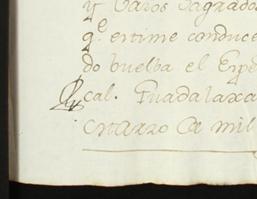 y Varos Sagrados
qe. estime conduce
do buelba el Expe
cal. Guadalaxa
enarzo de mil